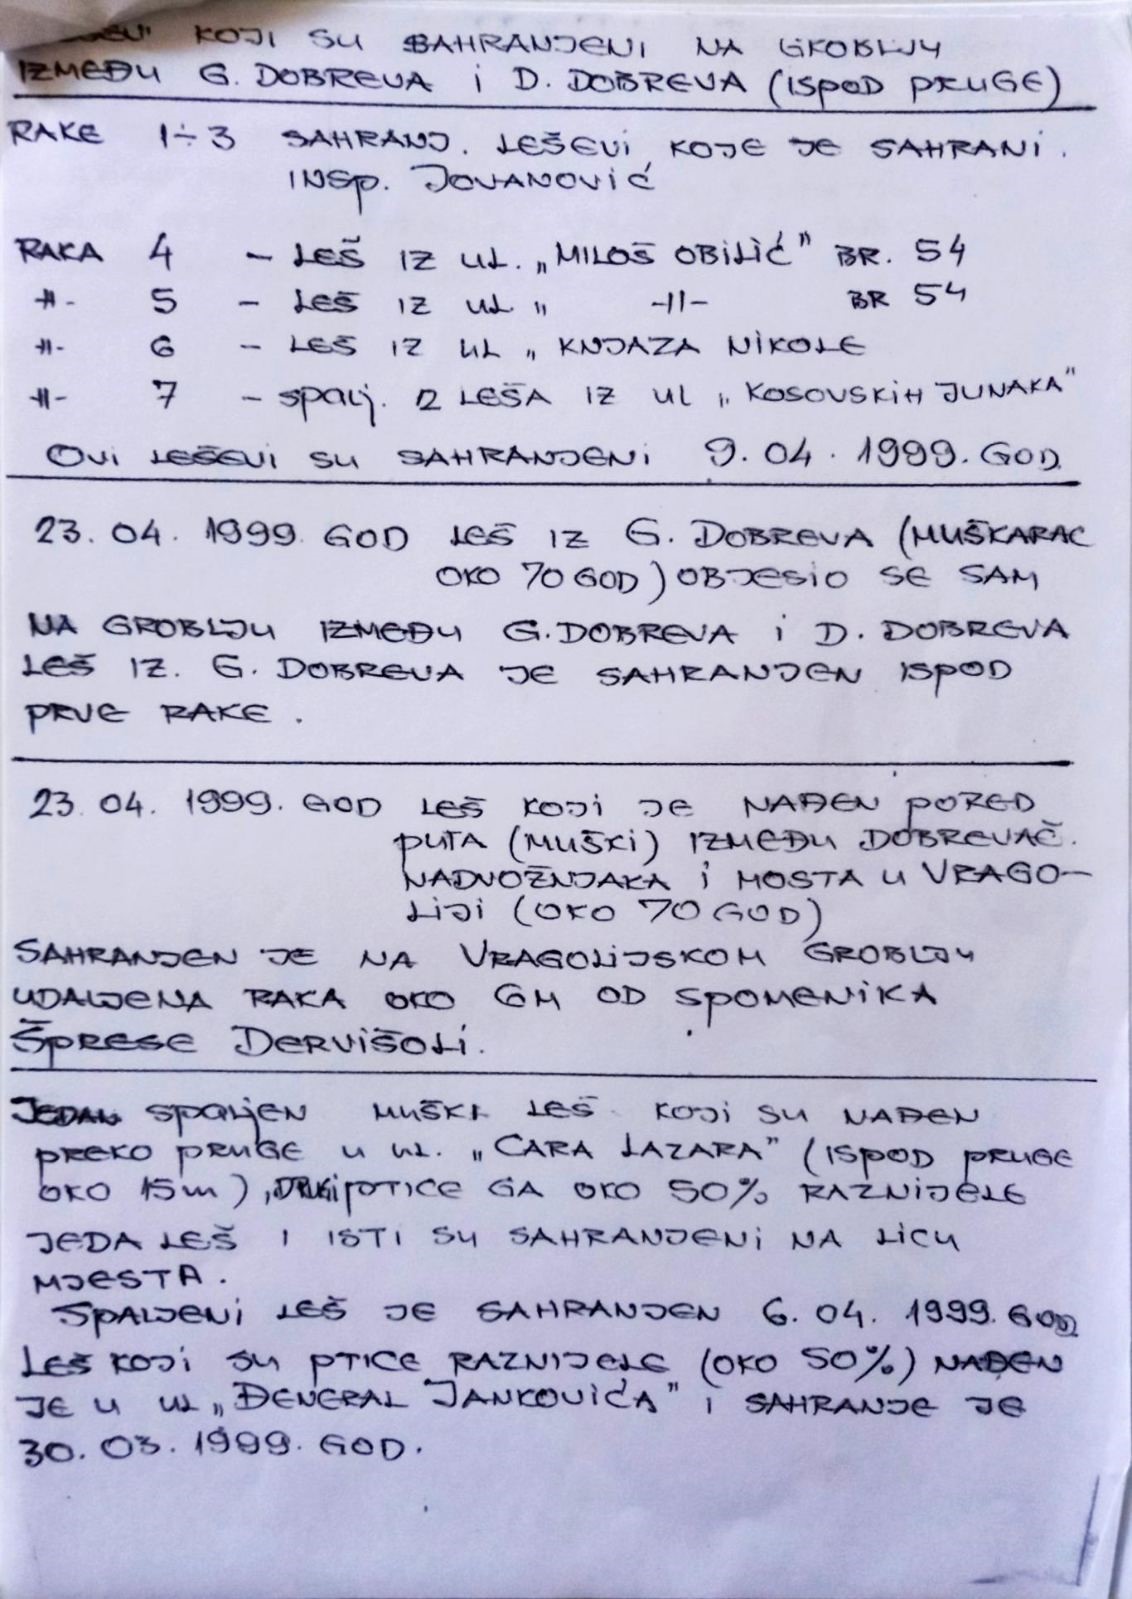 KOJI SU SAHRANJENI NA GROBLJU
IZMEĐU G. DOBREVA I D. DOBREVA (ISPOD PRUGE)
RAKE 1÷3 SAHRANJ. LEŠEVI KOJE JE SAHRANI.
INSP. JOVANOVIĆ
RAKA 4 - LEŠ IZ UL. „MILOŠ OBILIĆ" BR. 54
-||- 5 - LEŠ IZ UL „ -||- BR 54
-||- 6 - LEŠ IZ UL „ KNJAZA NIKOLE
-||- 7 - SPALJ. 2 LEŠA IZ UL „ KOSOVSKIH JUNAKA"
OVI LEŠEVI SU SAHRANJENI 9.04.1999. GOD
23.04.1999. GOD LEŠ IZ G. DOBREVA (MUŠKARAC
OKO 70 GOD) OBJESIO SE SAM
NA GROBLJU IZMEĐU G. DOBREVA I D. DOBREVA
LEŠ IZ. G. DOBREVA JE SAHRANJEN ISPOD
PRVE RAKE.
23.04.1999. GOD LEŠ KOJI JE NAĐEN PORED
PUTA (MUŠKI) IZMEĐU DOBREVAČ.
NADVOŽNJAKA I MOSTA U VRAGO-
LIJI (OKO 70 GOD)
SAHRANJEN JE NA VRAGOLIJSKOM GROBLJU
UDALJENA RAKA OKO 6M OD SPOMENIKA
ŠPRESE DERVIŠOLI.
JEDAN SPALJEN MUŠKI LEŠ KOJI SU NAĐEN
PREKO PRUGE U UL. „CARA LAZARA" (ISPOD PRUGE
OKO 15m), DRUGI PTICE GA OKO 50% RAZNIJELE
JEDA LEŠ I ISTI SU SAHRANJENI NA LICU
MJESTA.
SPALJENI LEŠ JE SAHRANJEN 6.04.1999. GOD
LEŠ KOJI SU PTICE RAZNIJELE (OKO 50%) NAĐEN
JE U UL „ĐENERAL JANKOVIĆA" I SAHRANJE JE
30.03.1999. GOD.